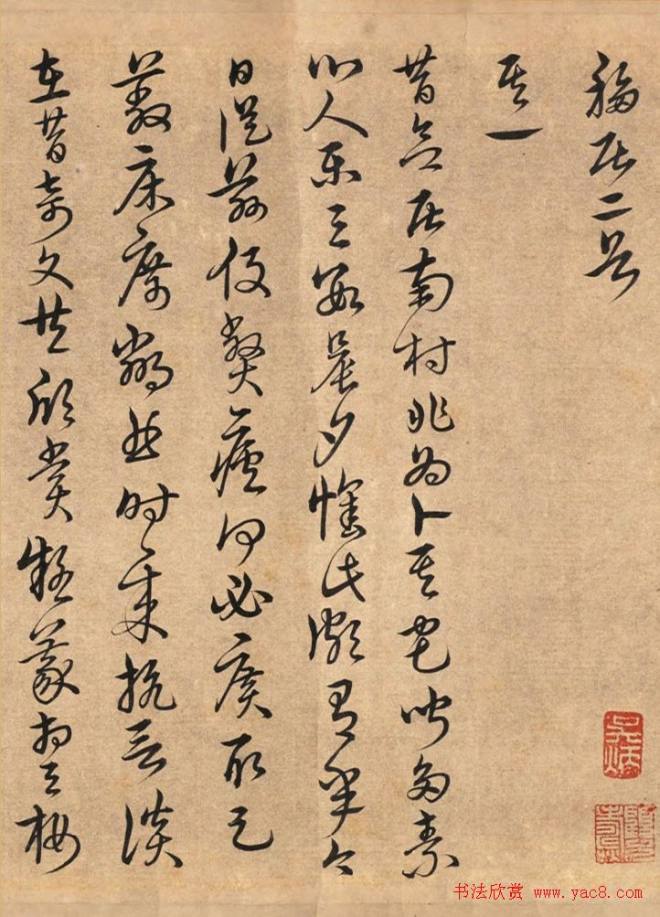 移居二首
其一
昔欲居南村非為卜其宅聞多素
心人樂与數晨夕懷此頗有年今
日從茲役弊廬何必廣取足
蔽床席鄰曲時々来抗言談
在昔奇文共欣賞疑義相与析
书法欣赏 www.yac8.com